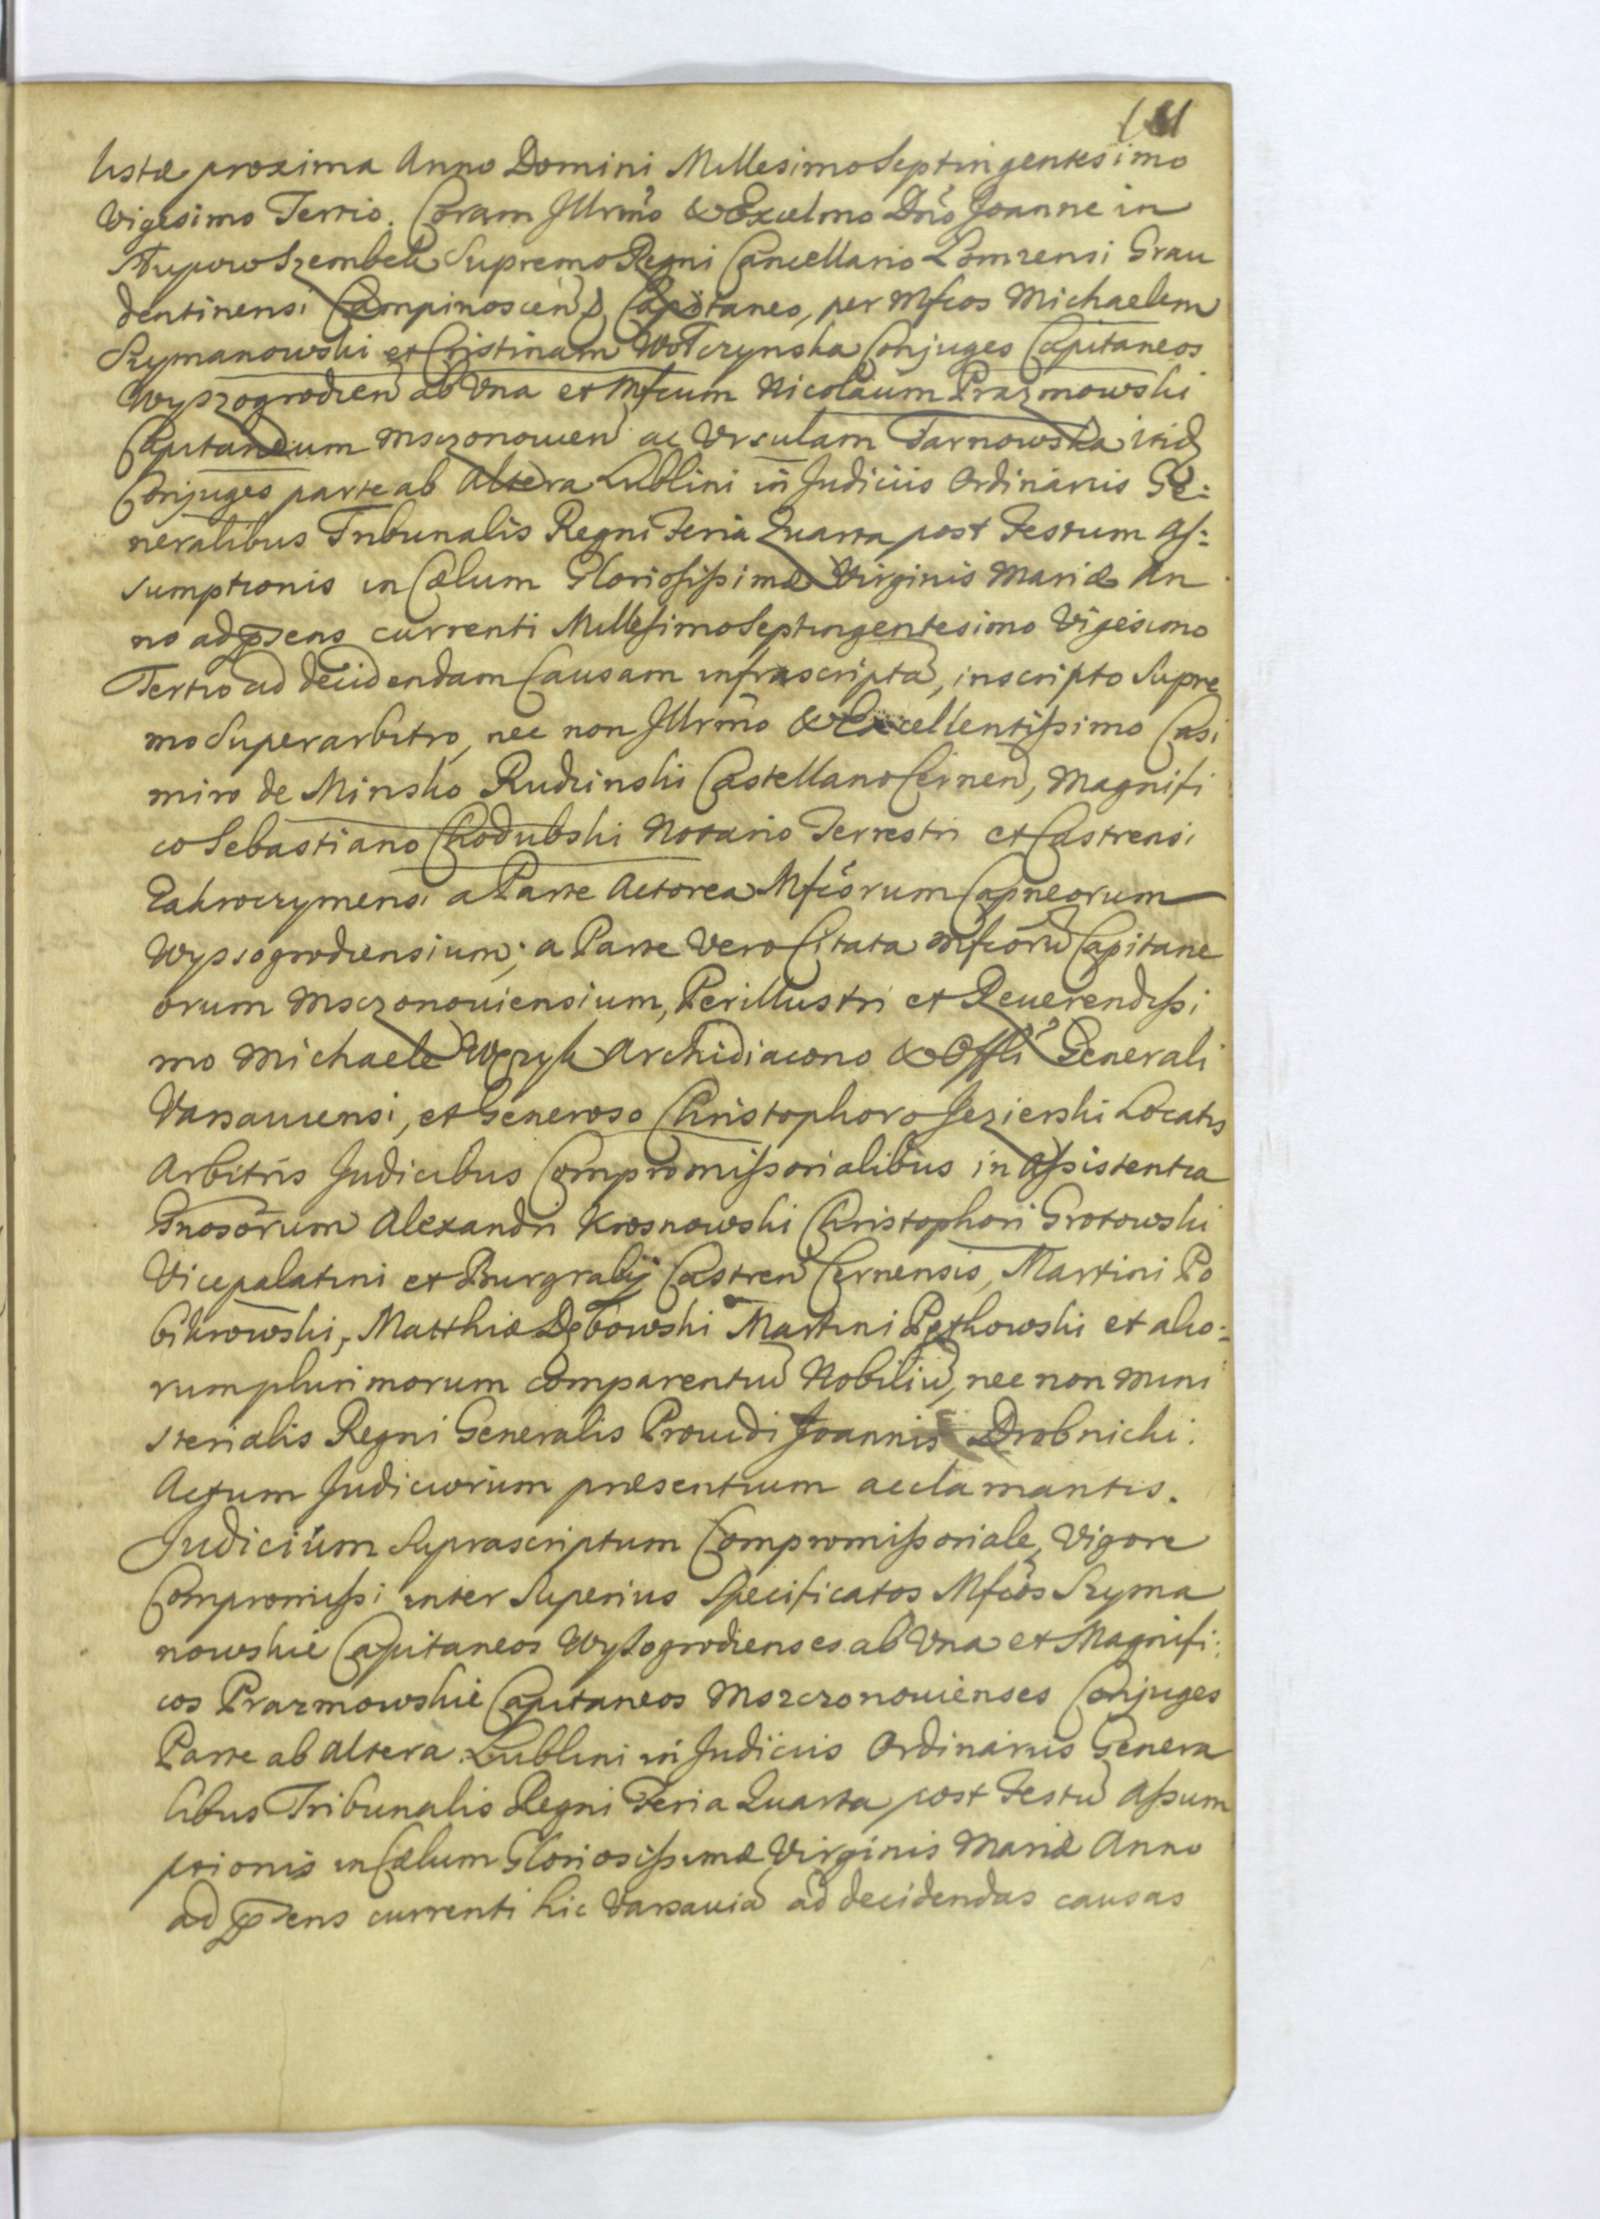 listæ proxima Anno Domini Millesimo Septingentesimo
Vigesimo Tertio. Coram Illrmo & Excelmo Dno Joanne in
Słupow Szembek Supremo Regni Cancellario Lomzensi Grau
dentinensi Campinoscen Capitaneo, per Mfcos Michaelem
Szymanowski et Cristinam Wołczynska Conjuges Capitaneos
Wyszogrodien ab Vna et Mfcum Nicolaum Prazmowski
Capitaneum Msczonowien ac Vrsulam Tarnowska itid
Conjuges parte ab Altera Lublini in Judiciis Ordinariis Ge:
neralibus Tribunalis Regni Feria Quarta post Festum As:
sumptionis in Cælum Gloriosissimæ Virginis Mariæ An
no ad psens currenti Millesimo Septingentesimo Vigesimo
Tertio ad decidendam Causam infrascripta, inscripto Supre
mo Superarbitro, nec non Illrmo & Excellentissimo Casi
miro de Minsko Rudzinski Castellano Cernen, Magnifi
co Sebastiano Chodubski Notario Terrestri et Castrensi
Zakroczymensi a Parte Actorea Mfcorum Capneorum
Wyssogrodiensium; a Parte Vero Citata Mfcoru Capitane
orum Msczonouiensium, Perillustri et Reuerendissi
mo Michaele Wężyk Archidiacono & Offli Generali
Varsauiensi, et Generoso Christophoro Jezierski Locatis
Arbitris Judicibus Compromissorialibus in Assistentia
Gnosorum Alexandri Krosnowski Christophori Grotowski
Vicepalatini et Burgrabij Castren Cernensis, Martini Po
bikrowski, Matthiæ Dębowski Martini Pętkowski et alio:
rum plurimorum comparentiu Nobiliu, nec non Mini
sterialis Regni Generalis Prouidi Joannis Drobnicki.
Actum Judiciorum præsentium acclamantis.
Judicium Suprascriptum Compromissoriale, Vigore
Compromissi inter Superius Specificatos Mfcos Szyma
nowskie Capitaneos Wysogrodienses ab Vna et Magnifi:
cos Prazmowskie Capitaneos Mszczonouienses Conjuges
Parte ab Altera Lublini in Judiciis Ordinariis Genera
libus Tribunalis Regni Feria Quarta post Festu Assum
ptionis in Cælum Gloriosissimæ Virginis Mariæ Anno
ad psens currenti hic Varsauia ad decidendas causas